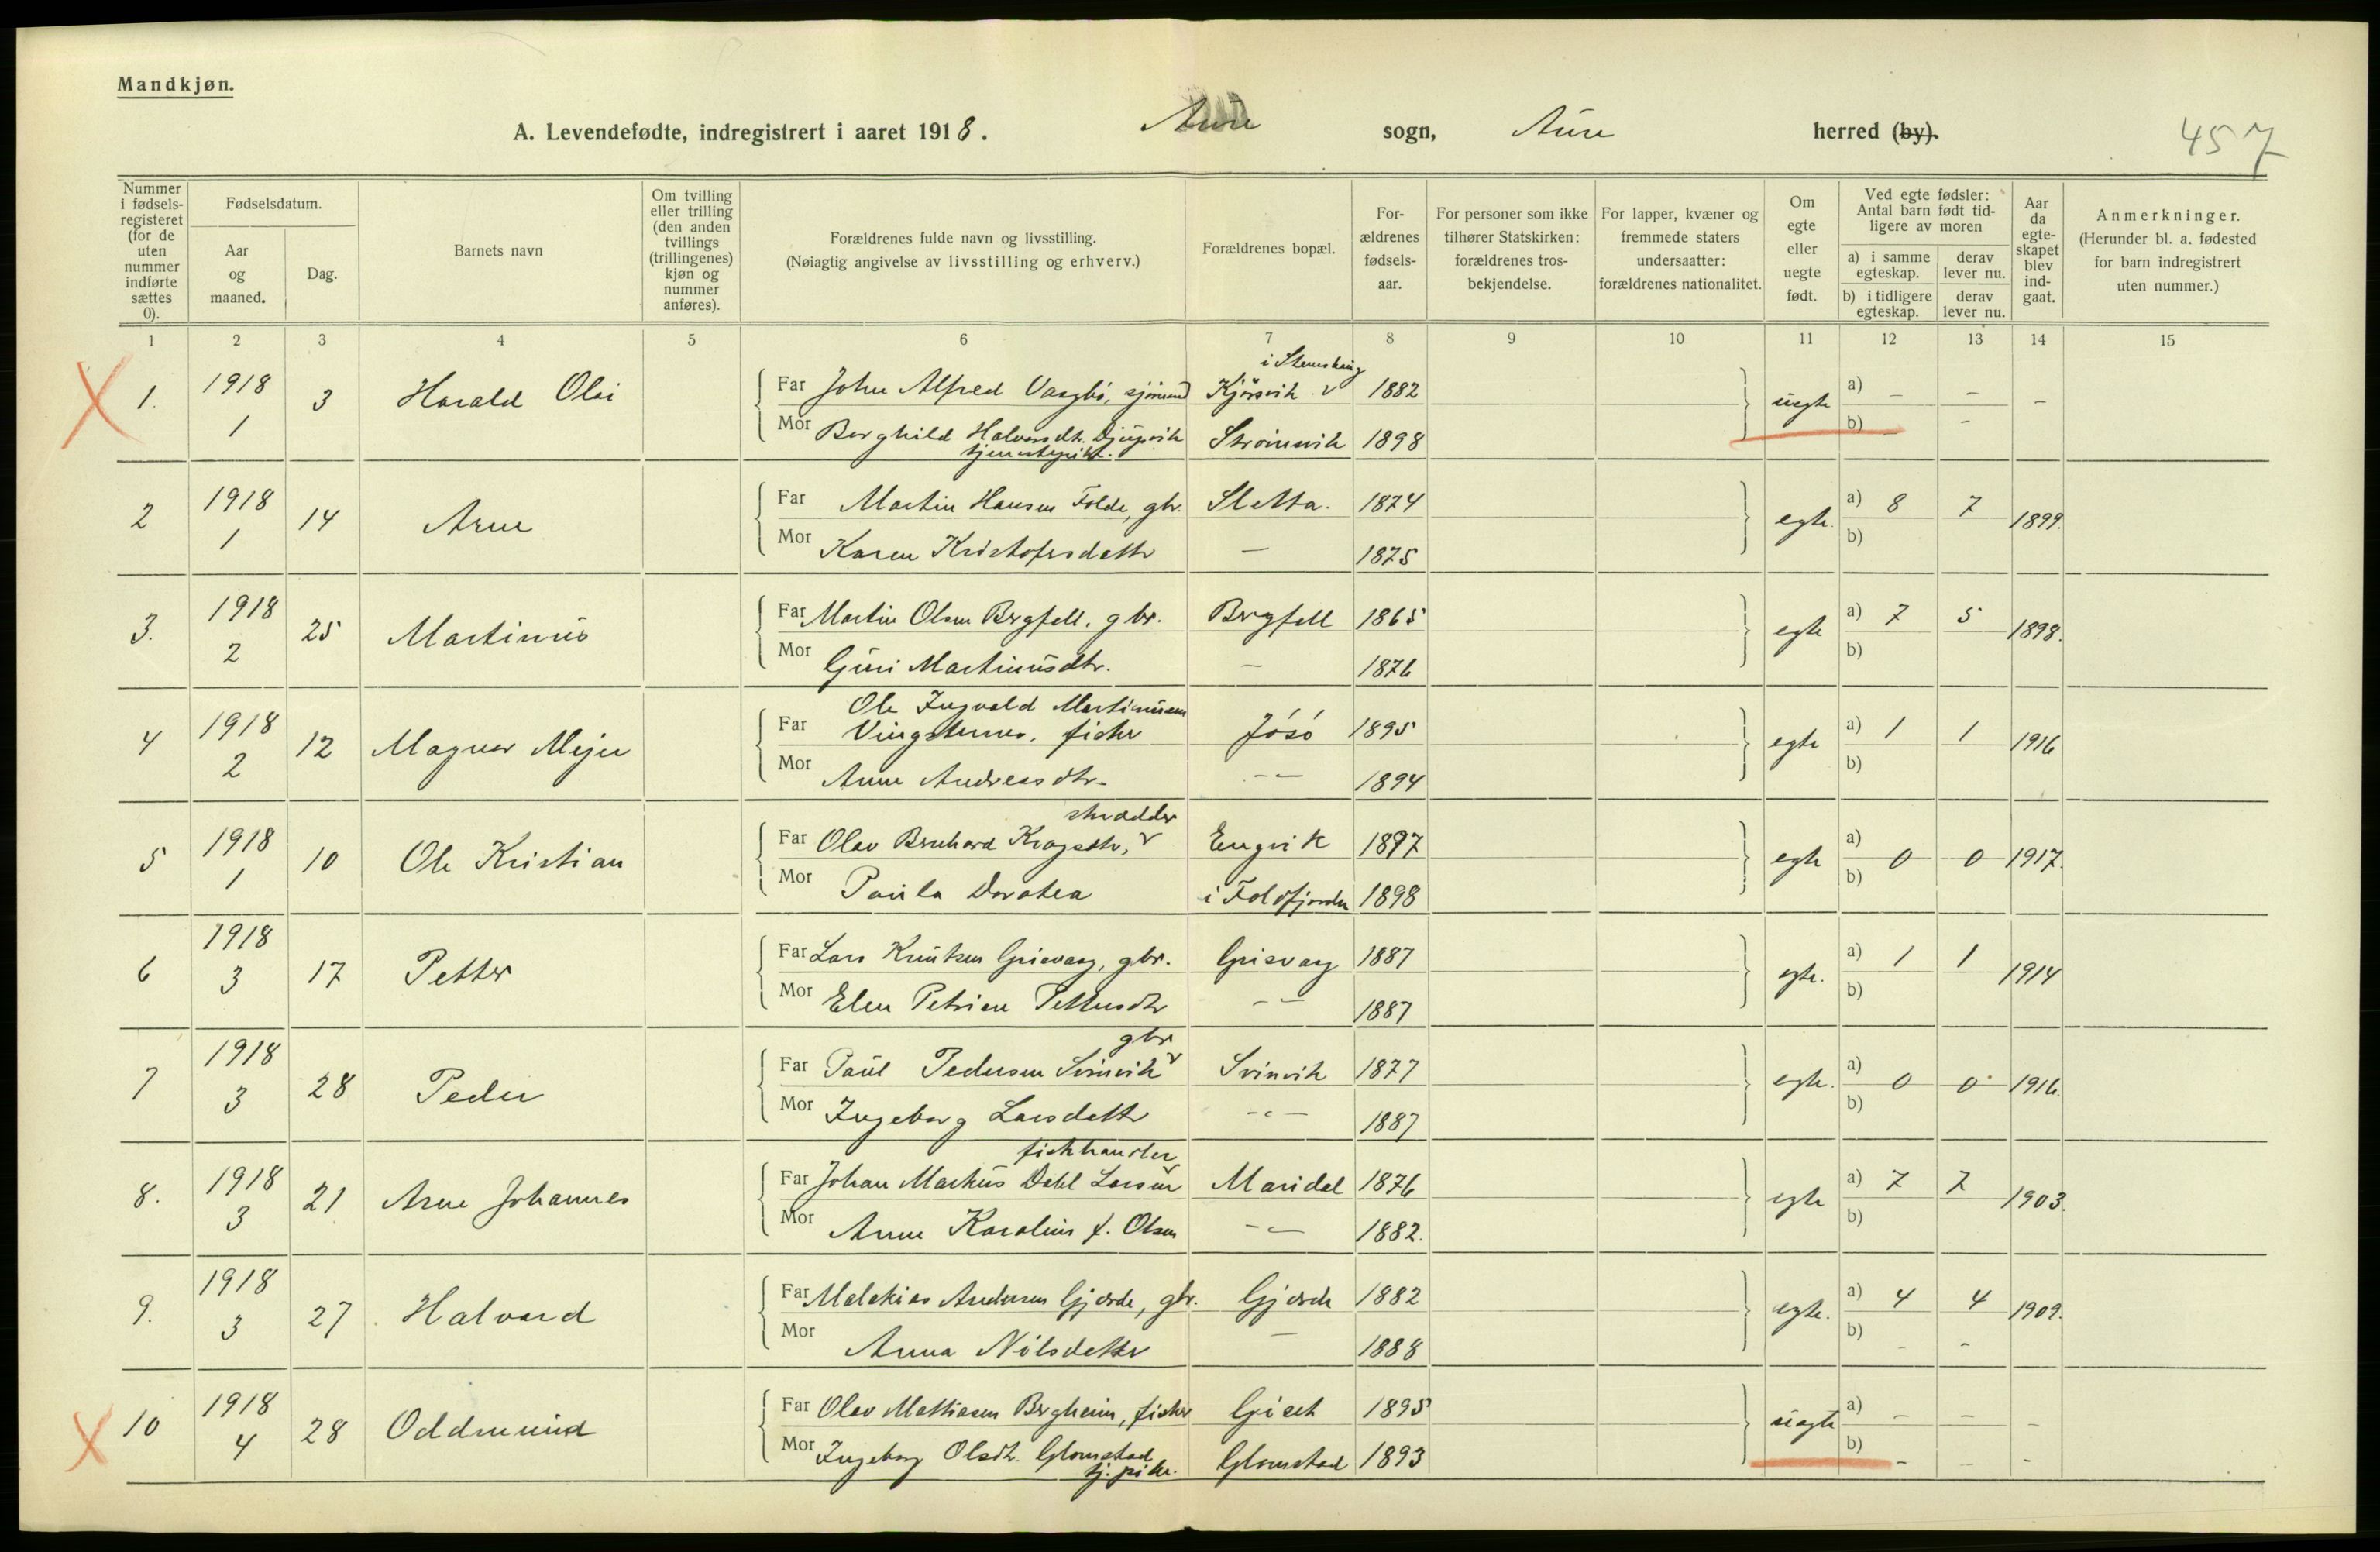 Mandkjøn.
A. Levendefødte, indregistrert i aaret 1918. Aure sogn, Aure herred (by). 457
Nummer i fødsels-registeret (for de uten nummer indførte sættes 0).
Fødselsdatum.
Aar og maaned.
Dag.
Barnets navn
Om tvilling eller trilling (den anden tvillings (trillingenes) kjøn og nummer anføres).
Forældrenes fulde navn og livsstilling.
(Nøiagtig angivelse av livsstilling og erhverv.)
Forældrenes bopæl.
For-ældrenes fødsels-aar.
For personer som ikke tilhører Statskirken: forældrenes tros-bekjendelse.
For lapper, kvæner og fremmede staters undersaatter: forældrenes nationalitet.
Om egte eller uegte født.
Ved egte fødsler: Antal barn født tid-ligere av moren
a) i samme egteskap.
derav lever nu.
b) i tidligere egteskap.
derav lever nu.
Aar da egte-skapet blev ind-gaat.
Anmerkninger.
(Herunder bl. a. fødested for barn indregistrert uten nummer.)
1 2 3 4 5 6 7 8 9 10 11 12 13 14 15
i Stemshaug
1. 1918 1 3 Harald Olai Far John Alfred Vaagbø, sjømand Kjørsvik 1882 uegte a) - - -
Mor Borghild Halvorsdtr. Djupvik Strømsvik 1898 b) - -
tjenestepike.
2 1918 1 14 Arne Far Martin Hansen Folde, gbr. Sletta. 1874 egte. a) 8 7 1899.
Mor Karen Kristofersdatter — 1875 b)
3. 1918 2 25 Martinus Far Martin Olsen Bergfall, gbr. Bergfall 1865 egte a) 7 5 1898.
Mor Guri Martinusdtr. — 1876 b)
Ole Ingvald Martinusen
4 1918 2 12 Magnar Mejer Far Vingsternes, fisker Jøsø 1895 egte a) 1 1 1916
Mor Anne Andreasdtr. -- 1894 b)
skrædder
5 1918 1 10 Ole Kristian Far Olav Bernhard Engvik 1897 egte a)
Mor Paula Dorotea i Foldfjorden 1898 b) 0 0 1917.
6 1918 3 17 Petter Far Lars Knutsen Grisvaag, gbr. Grisvaag 1887 egte. a) 1 1 1914
Mor Elen Petrine Pettersdtr -- 1887 b)
gbr
7 1918 3 28 Peder Far Paul Pedersen Svinvik Svinvik 1877 egte. a) 0 0 1916.
Mor Ingeborg Larsdatter -"- 1887 b)
fiskhandler
8. 1918 3 21 Arne Johannes Far Johan Markus Dahl Larsen Maridal 1876 egte a) 7 7 1903.
Mor Anne Karoline f. Olsen -"- 1882. b)
9. 1918 3 27 Halvard Far Malakias Andersen Gjerde, gbr. Gjerde 1882 egte. a) 4 4 1909.
Mor Anna Nilsdatter — 1888 b) - -
10 1918 4 28 Oddmund Far Olav Mattiasen Bergheim, fisker Giset 1895 uegte a) - - -
Mor Ingeborg Olsdtr. Glomstad Glomstad 1893 b) - -
tj. pike.